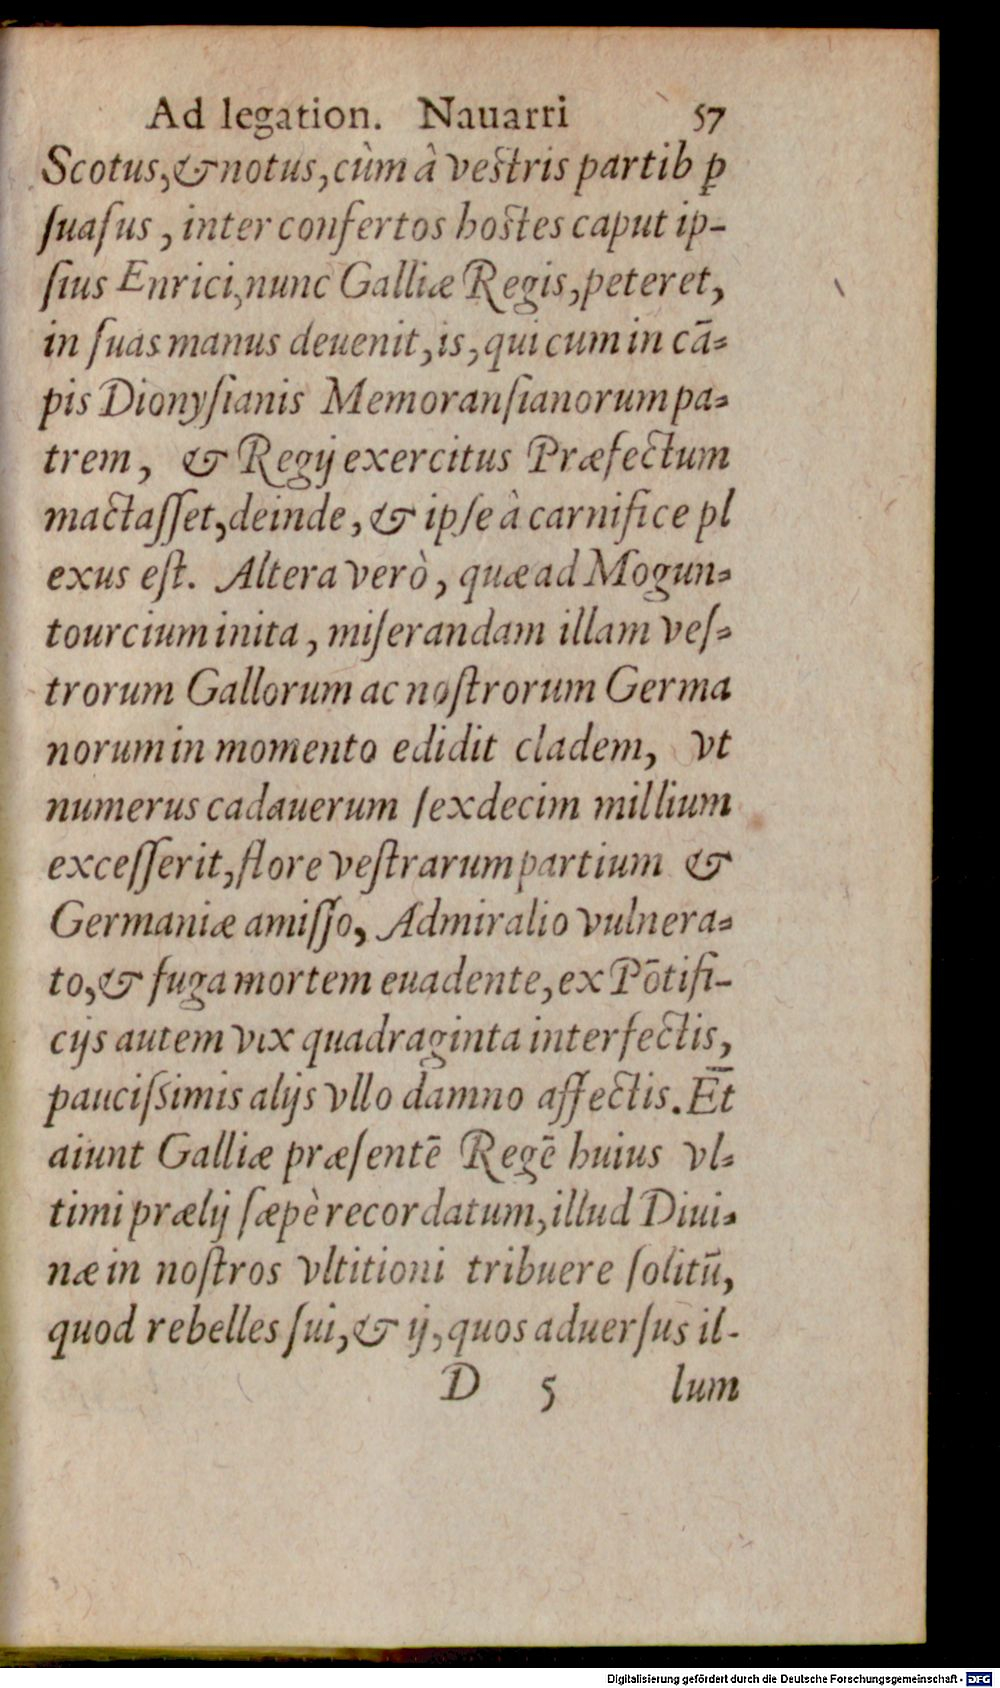 Ad legation. Nauarri 57
Scotus, & notus, cùm â vestris partib ꝑ
ſuaſus, inter confertos hostes caput ip-
ſius Enrici, nunc Galliæ Regis, peteret,
in ſuas manus deuenit, is, qui cum in cā-
pis Dionyſianis Memoranſianorum pa-
trem, & Regij exercitus Præfectum
mactaſſet, deinde, & ipſe â carnifice pl
exus eſt. Altera verò, quæ ad Mogun-
tourcium inita, miſerandam illam veſ-
trorum Gallorum ac noſtrorum Germa
norum in momento edidit cladem, vt
numerus cadauerum ſexdecim millium
exceſſerit, flore veſtrarum partium &
Germaniæ amiſſo, Admiralio vulnera-
to, & fuga mortem euadente, ex Pōtifi-
cijs autem vix quadraginta interfectis,
pauciſsimis alijs vllo damno affectis. Et
aiunt Galliæ præſentē Regē huius vl-
timi prælij ſæpè recordatum, illud Diui-
næ in noſtros vltitioni tribuere ſolitū,
quod rebelles ſui, & ij, quos aduerſus il-
D 5 lum
Digitalisierung gefördert durch die Deutsche Forschungsgemeinschaft - DFG